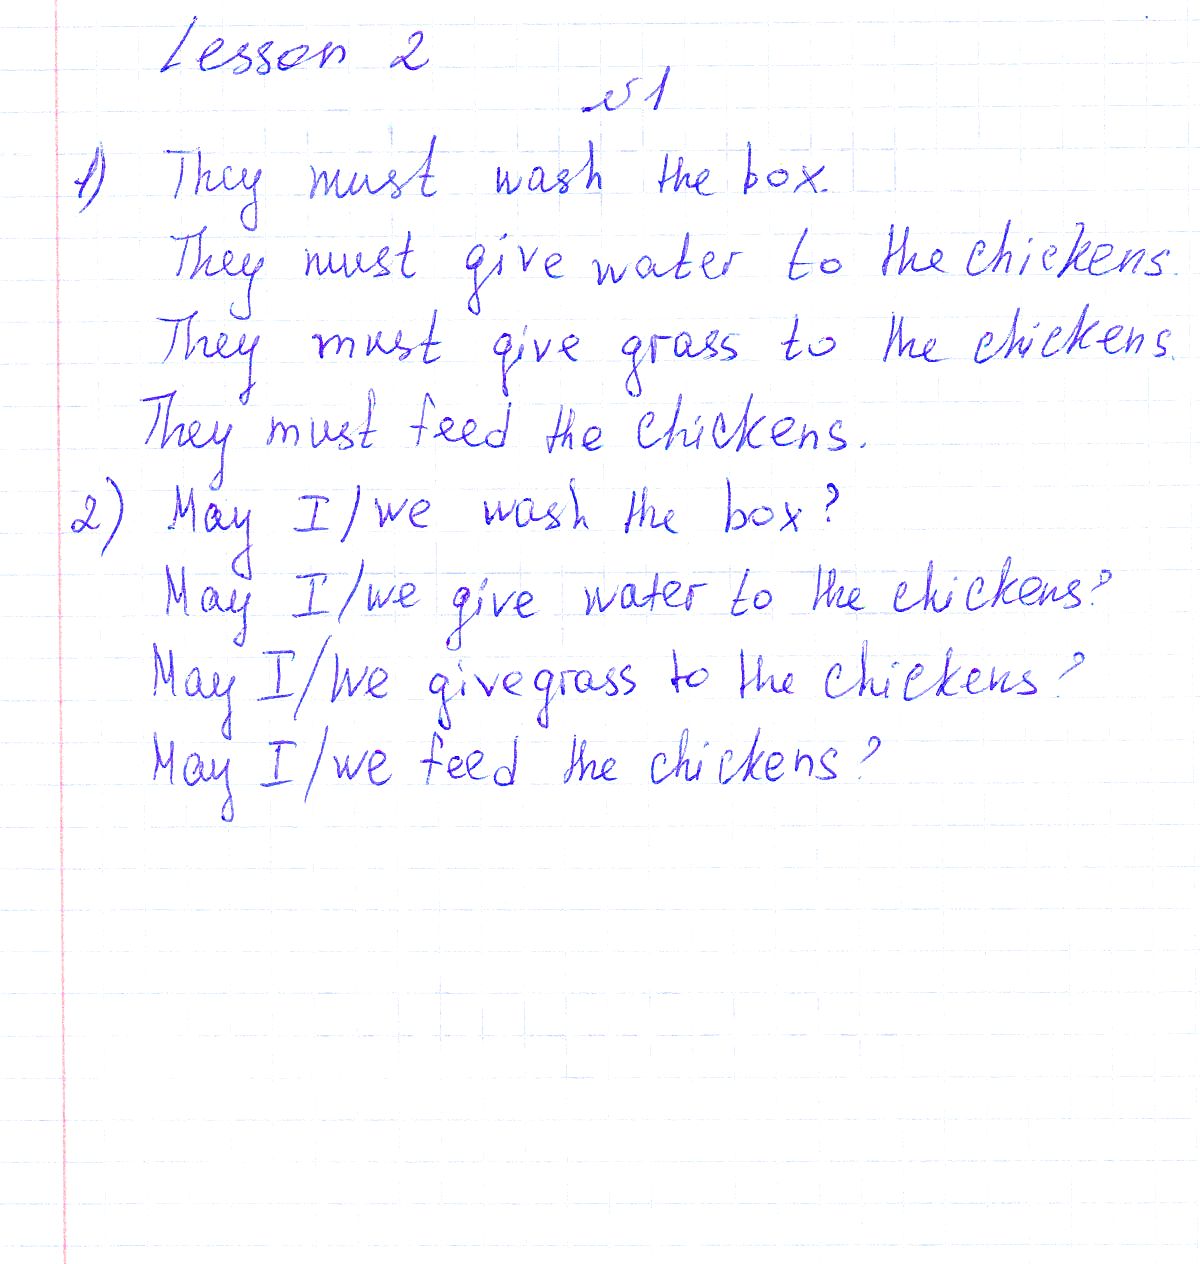 Lesson 2
№1
1) They must wash the box.
They must give water to the chickens.
They must give grass to the chickens.
They must feed the chickens.
2) May I/we wash the box?
May I/we give water to the chickens?
May I/we give grass to the chickens?
May I/we feed the chickens?